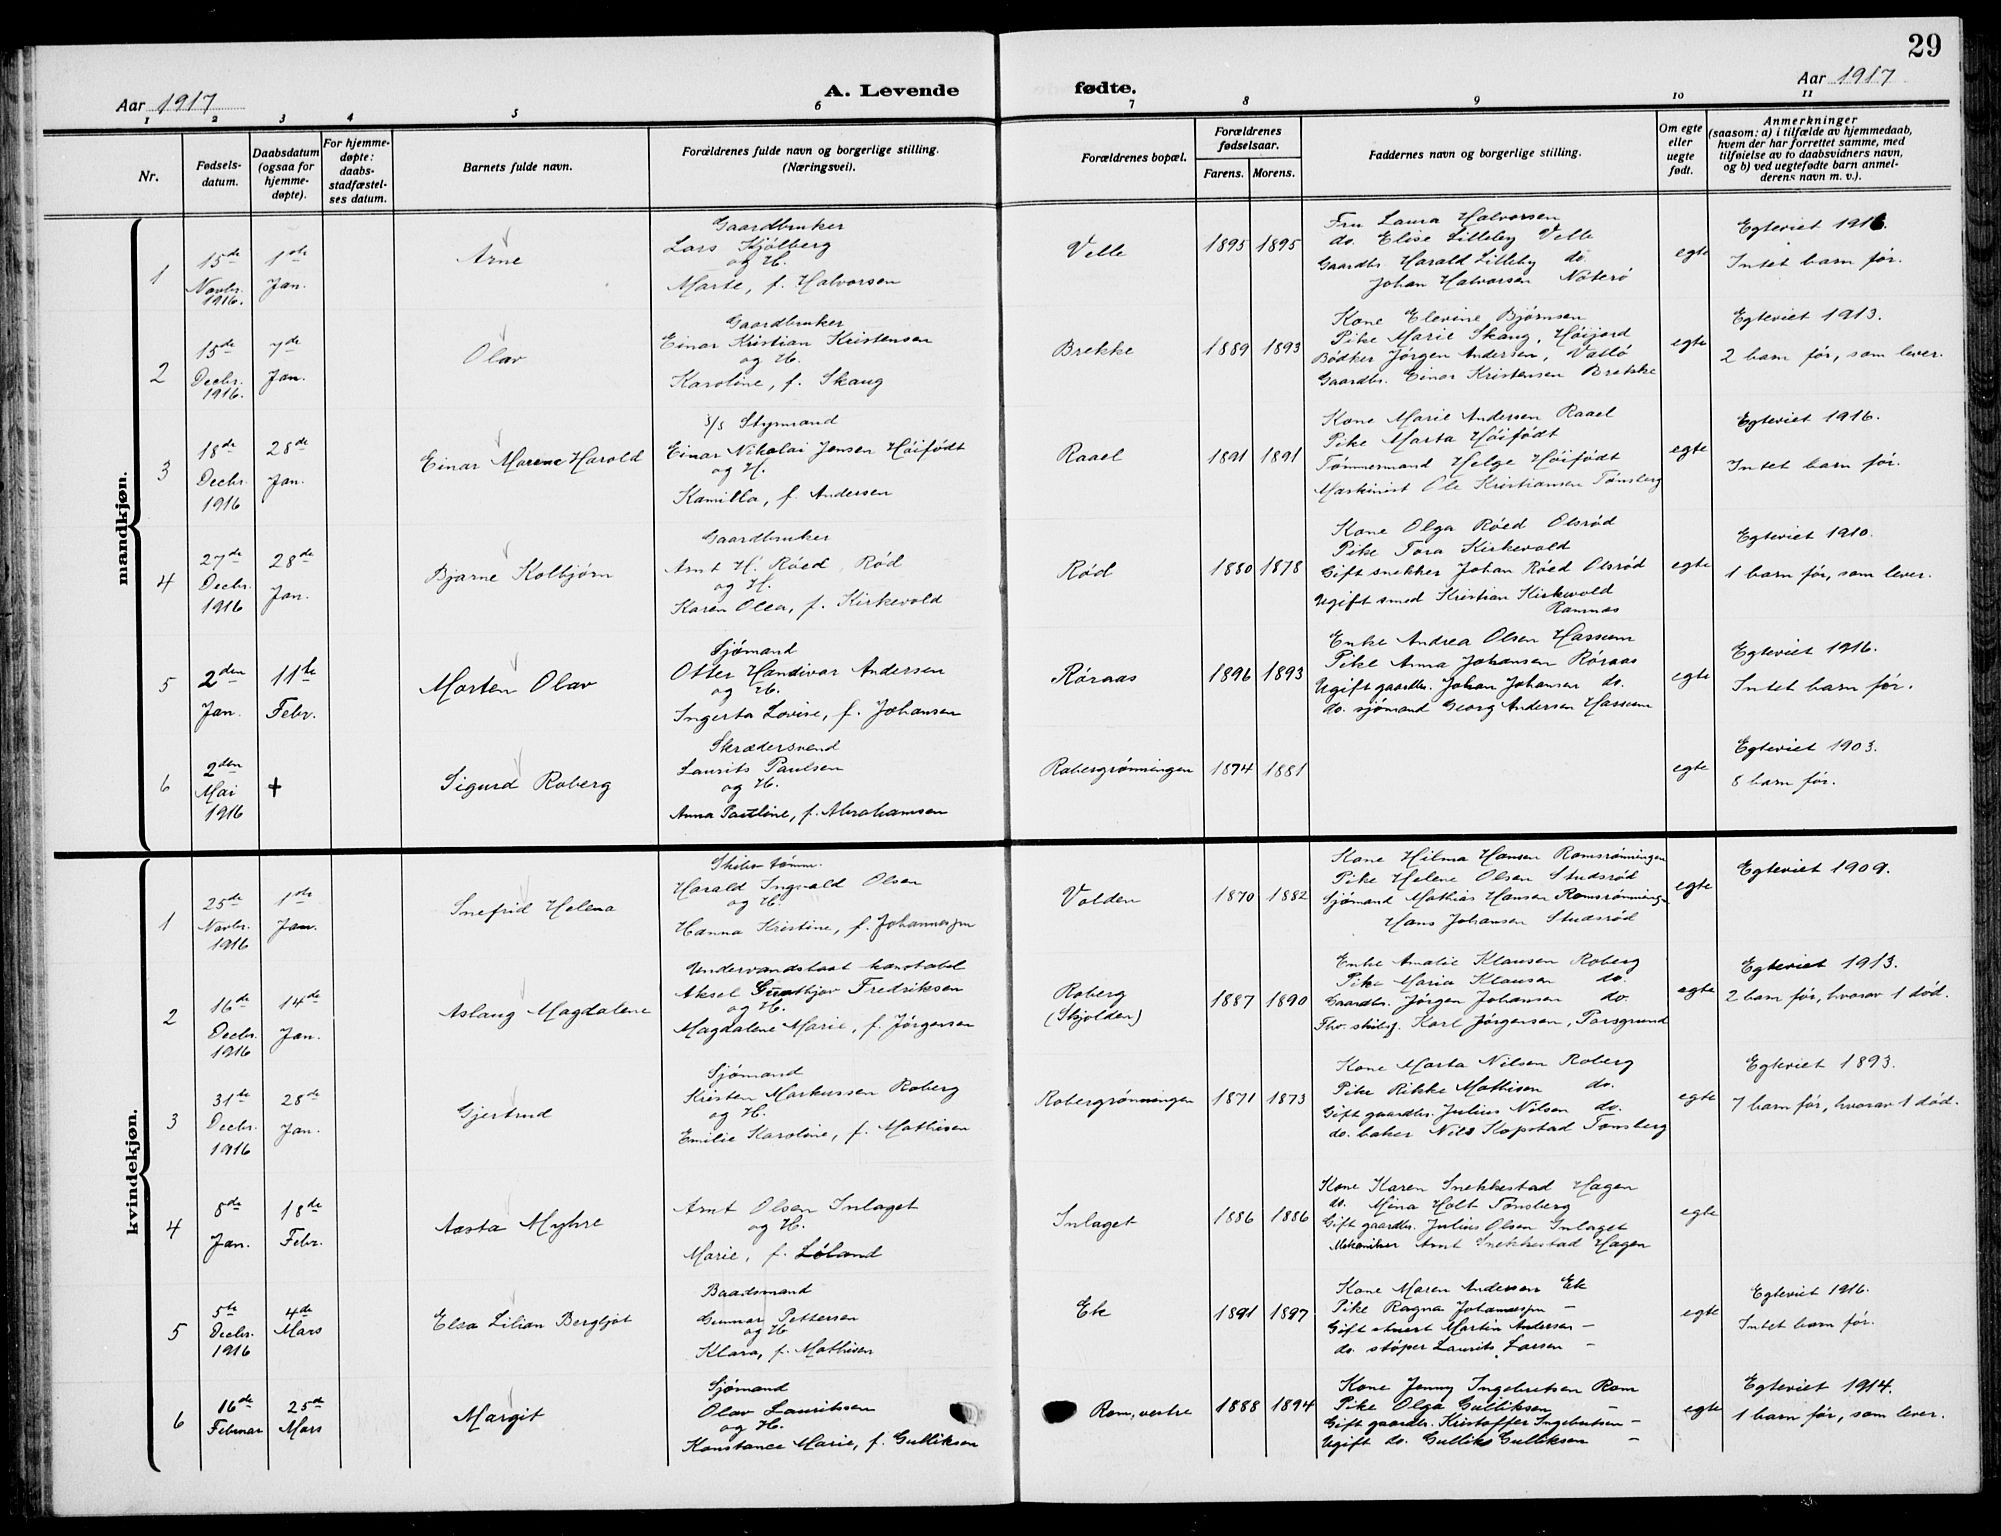 29
Aar 1917
A. Levende
fødte.
Aar 1917
1 2 3 4 5 6 7 8 9 10 11
Nr.
Fødsels-
datum.
Daabsdatum
(ogsaa for
hjemme-
døpte).
For hjemme-
døpte:
daabs-
stadfæstel-
ses datum.
Barnets fulde navn.
Forældrenes fulde navn og borgerlige stilling.
(Næringsvei).
Forældrenes bopæl.
Forældrenes
fødselsaar.
Farens. Morens.
Faddernes navn og borgerlige stilling.
Om egte
eller
uegte
født.
Anmerkninger
(saasom: a) i tilfælde av hjemmedaab,
hvem der har forrettet samme, med
tilføielse av to daabsvidners navn,
og b) ved uegtefødte barn anmel-
derens navn m. v.).
mandkjøn.
1
15de
Novbr.
1916.
1ste
Jan.
Arne
Gaardbruker
Lars Kjølberg
og H.
Marte, f. Halvorsen
Velle
1895 1895
Fru Laura Halvorsen
do. Elise Lilleby Velle
Gaardbr. Harald Lilleby do.
Johan Halvorsen Nøterø
egte
Egteviet 1916.
Intet barn før.
2
15de
Decbr.
1916.
7de
Jan.
Olav
Gaardbruker
Einar Kristian Kristensen
og H.
Karoline, f. Skaug
Brekke
1889 1893
Kone Elevine Bjørnsen
Pike Marie Skaug, Høijord
Bødker Jørgen Andersen, Vallø
Gaardbr. Einar Kristensen Brekke
egte
Egteviet 1913.
2 barn før, som lever.
3
18de
Decbr.
1916
28de
Jan.
Einar Marene Harold
s/s Styrmand
Einar Nikolai Jensen Høifødt
og H.
Kamilla, f. Andersen
Raael
1891 1891
Kone Marie Andersen Raael
Pike Marta Høifødt
Tømmermand Helge Høifødt
Maskinist Ole Kristiansen Tønsberg
egte
Egteviet 1916.
Intet barn før.
4
27de
Decbr.
1916
28de
Jan.
Bjarne Kolbjørn
Gaardbruker
Arnt H. Røed, Rød
og H.
Karen Olea, f. Kirkevold
Rød
1880 1878
Kone Olga Røed Olsrød
Pike Tora Kirkevold
Gift snekker Johan Røed Olsrød
Ugift smed Kristian Kirkevold
Ramnæs
egte
Egteviet 1910.
1 barn før, som lever.
5
2den
Jan.
11te
Febr.
Morten Olav
Sjømand
Otter Handivar Andersen
og H.
Ingerta Lovise, f. Johansen
Røraas
1896 1893
Enke Andrea Olsen Hassum
Pike Anna Johansen Røraas
Ugift gaardbr. Johan Johansen do.
do. sjømand Georg Andersen Hassum
egte
Egteviet 1916.
Intet barn før.
6
2den
Mai
1916
+
Sigurd Roberg
Skrædersvend
Laurits Paulsen
og H.
Anna Pauline, f. Abrahamsen
Robergrønningen
1874 1881
egte
Egteviet 1903.
8 barn før.
kvindekjøn.
1
25de
Novbr.
1916
1ste
Jan.
Snefrid Helena
Skibstømm.
Harald Ingvald Olsen
og H.
Hanna Kristine, f. Johannesen
Volden
1870 1882
Kone Hilma Hansen Romsrønningen
Pike Helene Olsen Studsrød
Sjømand Mathias Hansen Romsrønningen
Hans Johansen Studsrød
egte
Egteviet 1909.
2
16de
Decbr.
1916
14de
Jan.
Aslaug Magdalene
Undervandsbaat konstabel
Aksel Fredriksen
og H.
Magdalene Marie, f. Jørgensen
Roberg
(Skjolden)
1887 1890
Enke Amalie Klausen Roberg
Pike Maria Klausen do.
Gaardbr. Jørgen Johansen do.
Fhv. skibsf. Karl Jørgensen, Porsgrund
egte
Egteviet 1913.
2 barn før, hvorav 1 død.
3
31te
Decbr.
1916
28de
Jan.
Gjertrud
Sjømand
Kristen Markussen Roberg
og H.
Emilie Karoline, f. Mathisen
Robergrønningen
1871 1873
Kone Marta Nilsen Roberg
Pike Rikke Mathisen do.
Gift gaardbr. Julius Nilsen do.
do. baker Nils Kopstad Tønsberg
egte
Egteviet 1893.
7 barn før, hvorav 1 død.
4
8de
Jan.
18de
Febr.
Aasta Myhre
Arnt Olsen Inlaget
og H.
Marie, f. Løland
Inlaget
1886 1886
Kone Karen Snekkestad Hagen
do. Mina Holt Tønsberg
Gift gaardbr. Julius Olsen Inlaget
Mekaniker Arnt Snekkestad Hagen
egte
5
5te
Decbr.
1916
4de
Mars
Elsa Lilian Bergljot
Baadsmand
Gunnar Pettersen
og H
Klara, f. Mathisen
Ek
1891 1897
Kone Maren Andersen Ek
Pike Ragna Johannesen -
Gift stuert Martin Andersen -
do. støper Laurits Larsen -
egte
Egteviet 1916.
Intet barn før.
6
16de
Februar
25de
Mars
Margit
Sjømand
Olav Lauritssen
og H.
Konstance Marie, f. Gulliksen
Rom, vestre
1888 1894
Kone Jenny Ingebretsen Rom
Pike Olga Gulliksen -
Gift gaardbr. Kristoffer Ingebretsen -
Ugift do. Gulliks Gulliksen -
egte
Egteviet 1914.
1 barn før, som lever.